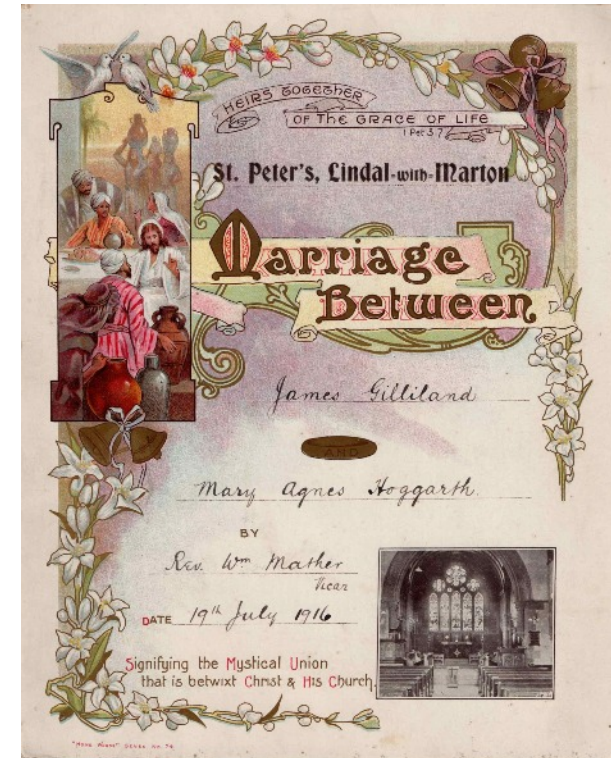 HEIRS TOGETHER
OF THE GRACE OF LIFE
1 Pet 3 7
St. Peter's, Lindal-with-Marton
Marriage
Between
James Gilliland
AND
Mary Agnes Hoggarth.
BY
Rev. Wm Mather
Vicar
DATE 19th July 1916
Signifying the Mystical Union
that is betwixt Christ & His Church.